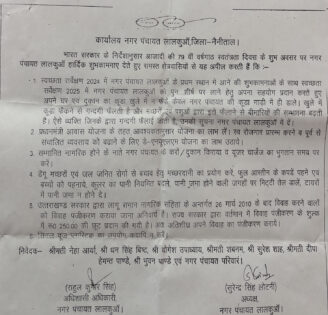 कार्यालय नगर पंचायत लालकुआँ, जिला-नैनीताल।
भारत सरकार के निर्देशानुसार आजादी की 79 वीं वर्षगांठ स्वतंत्रता दिवस के शुभ अवसर पर नगर
पंचायत लालकुआँ हार्दिक शुभकामनाएं देते हुए समस्त क्षेत्रवासियों से यह अपील करती है कि :-
1. स्वच्छता सर्वेक्षण 2024 में नगर पंचायत लालकुआँ के प्रथम स्थान में आने की शुभकामनाओं के साथ स्वच्छता
सर्वेक्षण 2025 में नगर पंचायत लालकुआँ को पुनः शीर्ष पर लाने हेतु अपना सहयोग प्रदान करते हुए
अपने घर एवं दुकान का कूड़ा खुले में न फेंके केवल नगर पंचायत की कूड़ा गाड़ी में ही डालें। खुले में
कूड़ा फेंकने से गन्दगी फैलती है और मच्छरों एवं पशुओं द्वारा इसे फैलाने से बीमारियों की सम्भावना बढ़ती
है। ऐसे व्यक्ति जिनके द्वारा गन्दगी फैलाई जाती है, उनकी सूचना नगर पंचायत लालकुआँ में दें।
2. प्रधानमंत्री आवास योजना के तहत आवश्यकतानुसार योजना का लाभ लें। स्व रोजगार प्रारम्भ करने व पूर्व से
संचालित व्यवसाय को बढ़ाने के लिए योजना का लाभ उठायें।
3. सम्मानित नागरिक होने के नाते नगर पंचायत के करों / दुकान किराया व यूजर चार्जेज का भुगतान समय पर
करें।
4. डेंगू मच्छरों एवं जल जनित रोगों से बचाव हेतु मच्छरदानी का प्रयोग करें, फुल आस्तीन के कपड़े पहने एवं
बच्चों को पहनायें, कूलर का पानी नियमित बदलें, पानी जमा होने वाली जगहों पर मिट्टी तेल डालें, टायरों
में पानी जमा न होने दें।
5. उत्तराखण्ड सरकार द्वारा लागू समान नागरिक संहिता के अन्तर्गत 26 मार्च 2010 के बाद विवाह करने वालों
को विवाह पंजीकरण कराया जाना अनिवार्य है। राज्य सरकार द्वारा वर्तमान में विवाह पंजीकरण के शुल्क
में रु0 250.00 की छूट प्रदान की गयी है। अतः अतिशीघ्र अपने विवाह का पंजीकरण करायें।
6. का उपयोग न करें।
निवेदक- श्रीमती नेहा आर्या, श्री धन सिंह बिष्ट, श्री योगेश उपाध्याय, श्रीमती शबनम, श्री सुरेश शाह, श्रीमती दीपा
हेमन्त पाण्डे, श्री भुवन पाण्डे एवं नगर पंचायत परिवार।
(राहुल कुमार सिंह)
अधिशासी अधिकारी,
नगर पंचायत लालकुआँ।
(सुरेन्द्र सिंह लोटनी)
अध्यक्ष,
नगर पंचायत लालकुआँ।